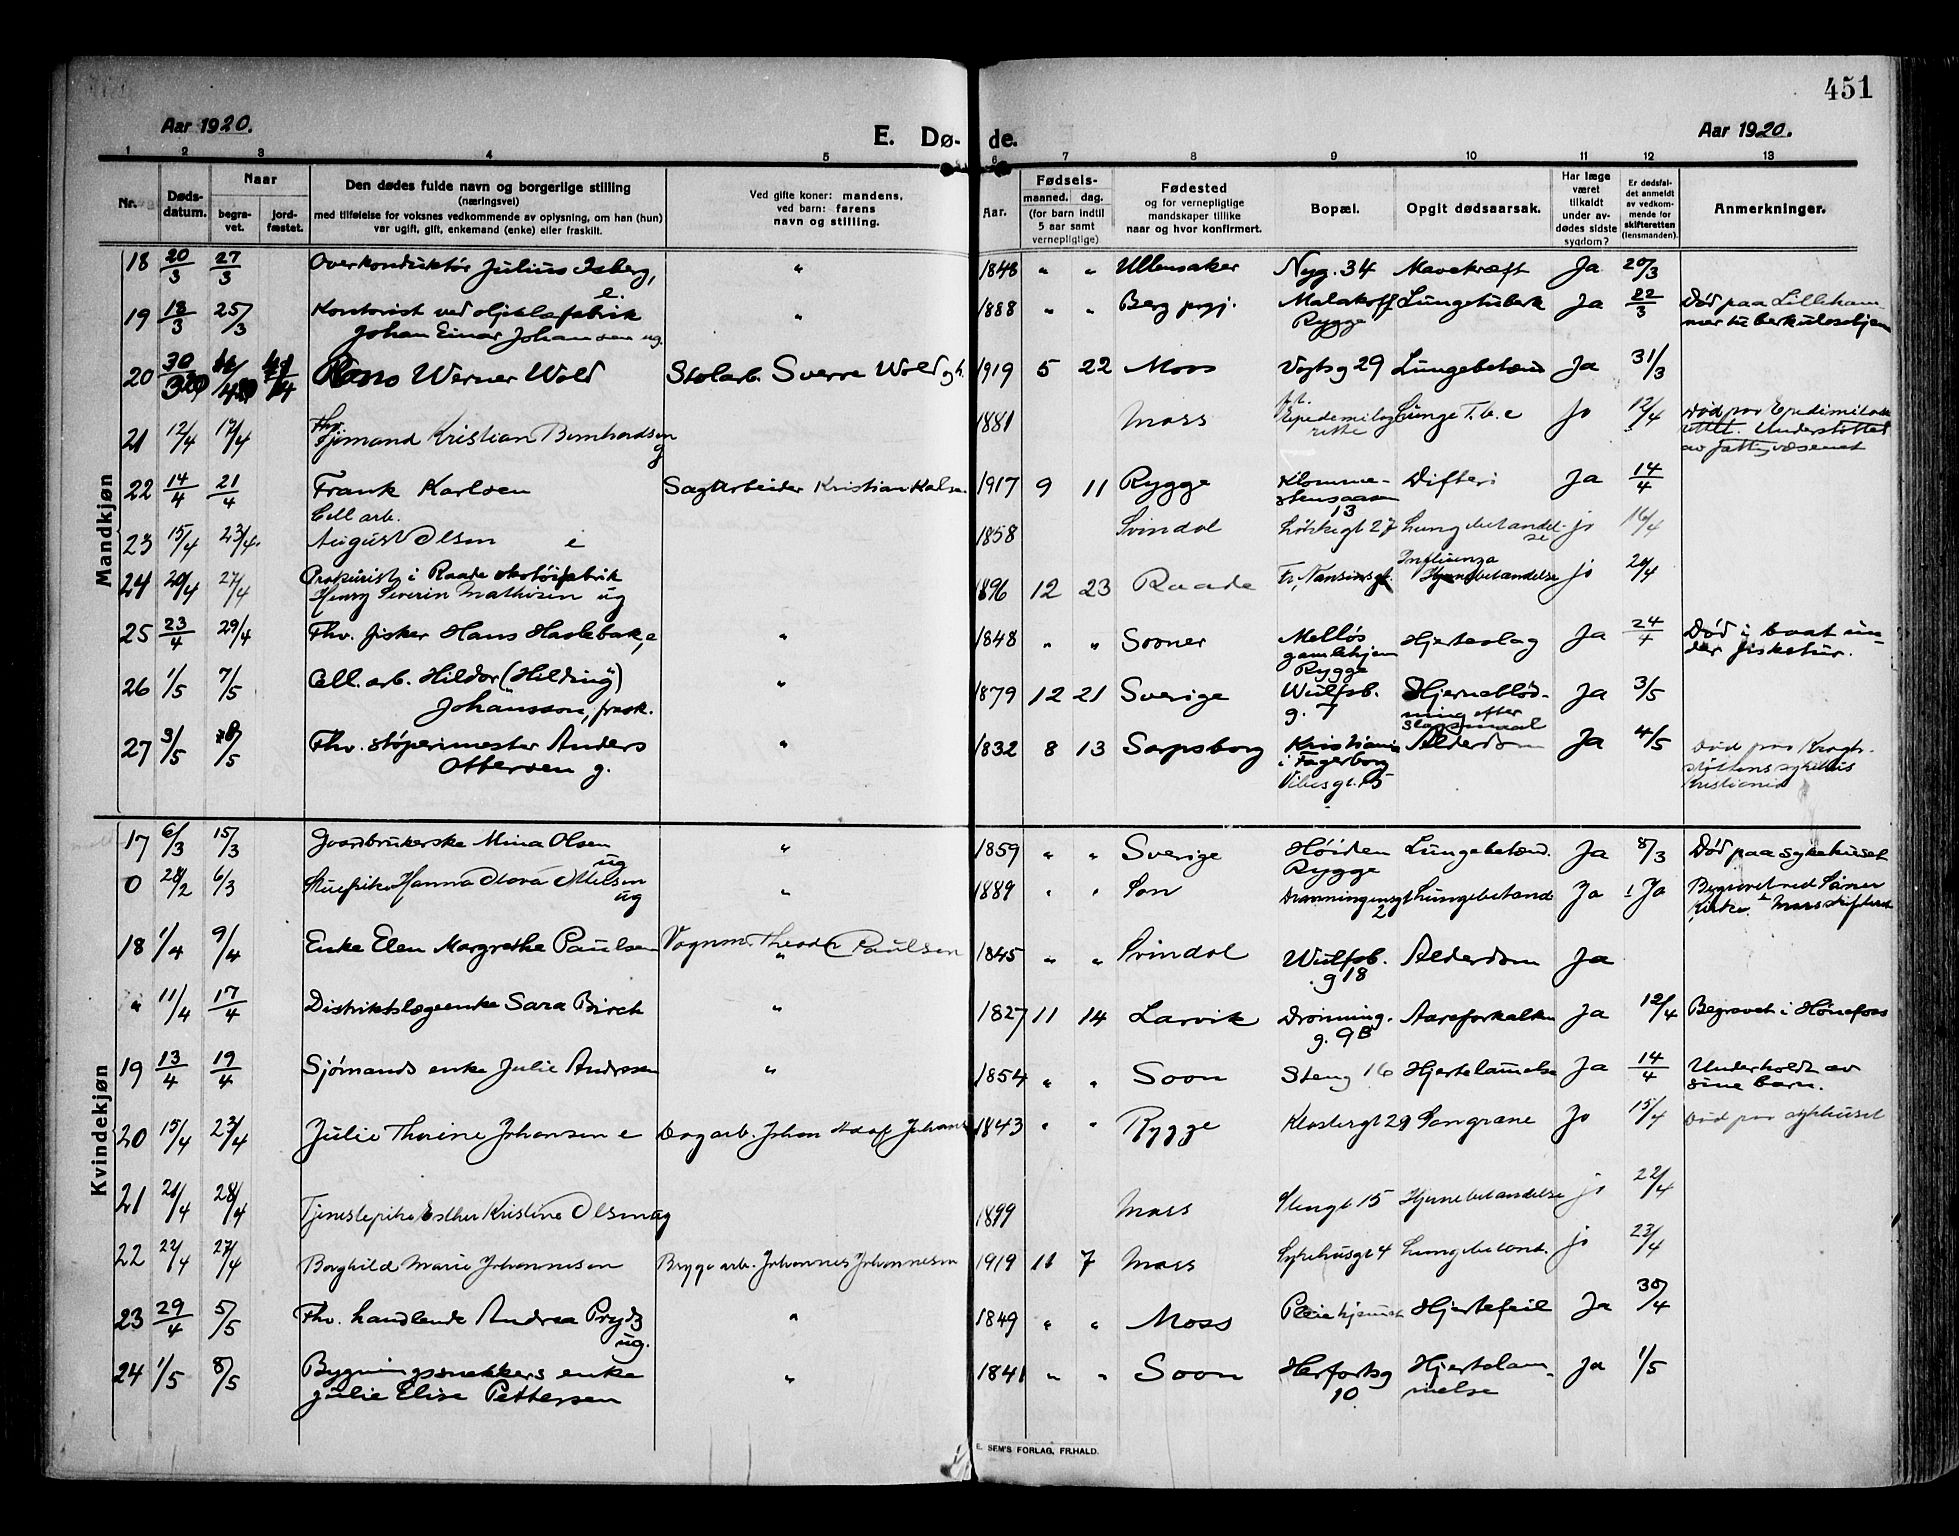 451
Aar 1920.
E. Dø- de.
Aar 1920.
1 2 3 4 5 6 7 8 9 10 11 12 13
Nr. Døds-datum. Naar begra-vet. jord-fæstet. Den dødes fulde navn og borgerlige stilling (næringsvei) med tilføielse for voksnes vedkommende av oplysning, om han (hun) var ugift, gift, enkemand (enke) eller fraskilt. Ved gifte koner: mandens, ved barn: farens navn og stilling. Aar. Fødsels- maaned. dag. (for barn indtil 5 aar samt vernepligtige) Fødested og for vernepligtige mandskaper tillike naar og hvor konfirmert. Bopæl. Opgit dødsaarsak. Har læge været tilkaldt under av-dødes sidste sygdom? Er dødsfal-det anmeldt av vedkom-mende for skifteretten (lensmanden). Anmerkninger.
Mandkjøn
18 20/3 27/3 Overkonduktør Julius Isberg, e. " 1848 " " Ullensaker Nyg. 34 Mavekræft Ja 20/3
19 18/3 25/3 Kontorist ved Hjulafabrik Johan Einar Johansen ug. " 1888 " " Berg prgj. Malakoff Rygge Lungetuberk Ja 22/3 Død paa Lilleham-mer tuberkulosehjem
20 30/3 Werner Wold Stolarb. Sverre Wold 1919 5 22 Moss Vogtsg 29 Lungebetænd Ja 31/3
21 12/4 17/4 Fhv. Sjømand Kristian Bernhardsen g 1881 Moss Lunge T.b.c Ja 12/4 Død paa Understøttet av fattigvæsenet
22 14/4 21/4 Frank Karlsen Sagarbeider Kristian 1917 9 11 Rygge 13 Difteri Ja 14/4
23 15/4 23/4 Cell arb. August Olsen e 1858 Svindal 27 Lungebetændel-se ja 16/4
24 20/4 27/4 Prokurist i Raade skotøifabrik Henry Severin Mathisen ug 1896 12 23 Raade Fr. Nansensgt. Influenza Hjernebetændelse ja 20/4
25 23/4 29/4 Fhv. fisker Hans Haslebak, e " 1848 " " Sooner Melløs gamlehjem Rygge Hjerteslag Ja 24/4 Død i baat un-der fisketur.
26 1/5 7/5 Cell. arb. Hildor (Hilding) Johansson, frask. " 1879 12 21 Sverige Wulfsb. g. 7 Hjerneblød-ning efter slagsmaal Ja 3/5
27 3/5 8/5 Fhv. støperimester Anders Ottersen g. " 1832 8 13 Sarpsborg Kristiania i Fagerborg Vibesgt. 15 Alderdom Ja 4/5 Død paa Krogh-støttens sykehus Kristiania
Kvindekjøn
17 6/3 15/3 Jordbrukerske Mina Olsen ug " 1859 " " Sverige Høiden Rygge Lungebetænd. Ja 8/3 Død paa sykehuset
0 28/2 6/3 Stuepike Hanna ug " 1889 " " Son Dronningensgt 2 Lungebetænd Ja Ja Begravet ved Såner Kirke.
18 1/4 9/4 Enke Elen Margrethe Paulsen Vognm. Theodor Paulsen 1845 " " Svindal Wulfsb. g 18 Alderdom Ja
" 11/4 17/4 Distriktslægeenke Sara Birch " 1827 11 14 Larvik Dronning. g. 9B Aareforkalkn Ja 12/4 Begravet i Hønefoss
19 13/4 19/4 Sjømands enke Julie Andresen " 1854 " " Soon Steng 16 Hjertelammelse Ja 14/4 Underholdt av sine barn.
20 15/4 23/4 Julie Thorine Johansen e Dagarb. Johan Adolf Johans 1843 " " Rygge Klostergt 29 Sangræne Ja 15/4 Død paa sykhuset
21 21/4 28/4 Tjenestepike Esther Kristine Olsen ug 1899 Moss Stengt 15 Hjernebetændelse ja 22/4
22 22/4 27/4 Borghild Marie Johannesen Bryggearb. Johannes Johannesen 1919 11 7 Moss Sykehusgt 4 Lungebetænd. ja 23/4
23 29/4 5/5 Fhv. handlende Andrea Prydz ug. " 1849 " " Moss Pleiehjemmet Hjertefeil Ja 30/4
24 1/5 8/5 Bygningssnekkers enke Julie Elise Pettersen " 1841 " " Soon Herfortsg 10 Hjertelam-melse Ja 1/5
E. SEM'S FORLAG, FR.HALD.